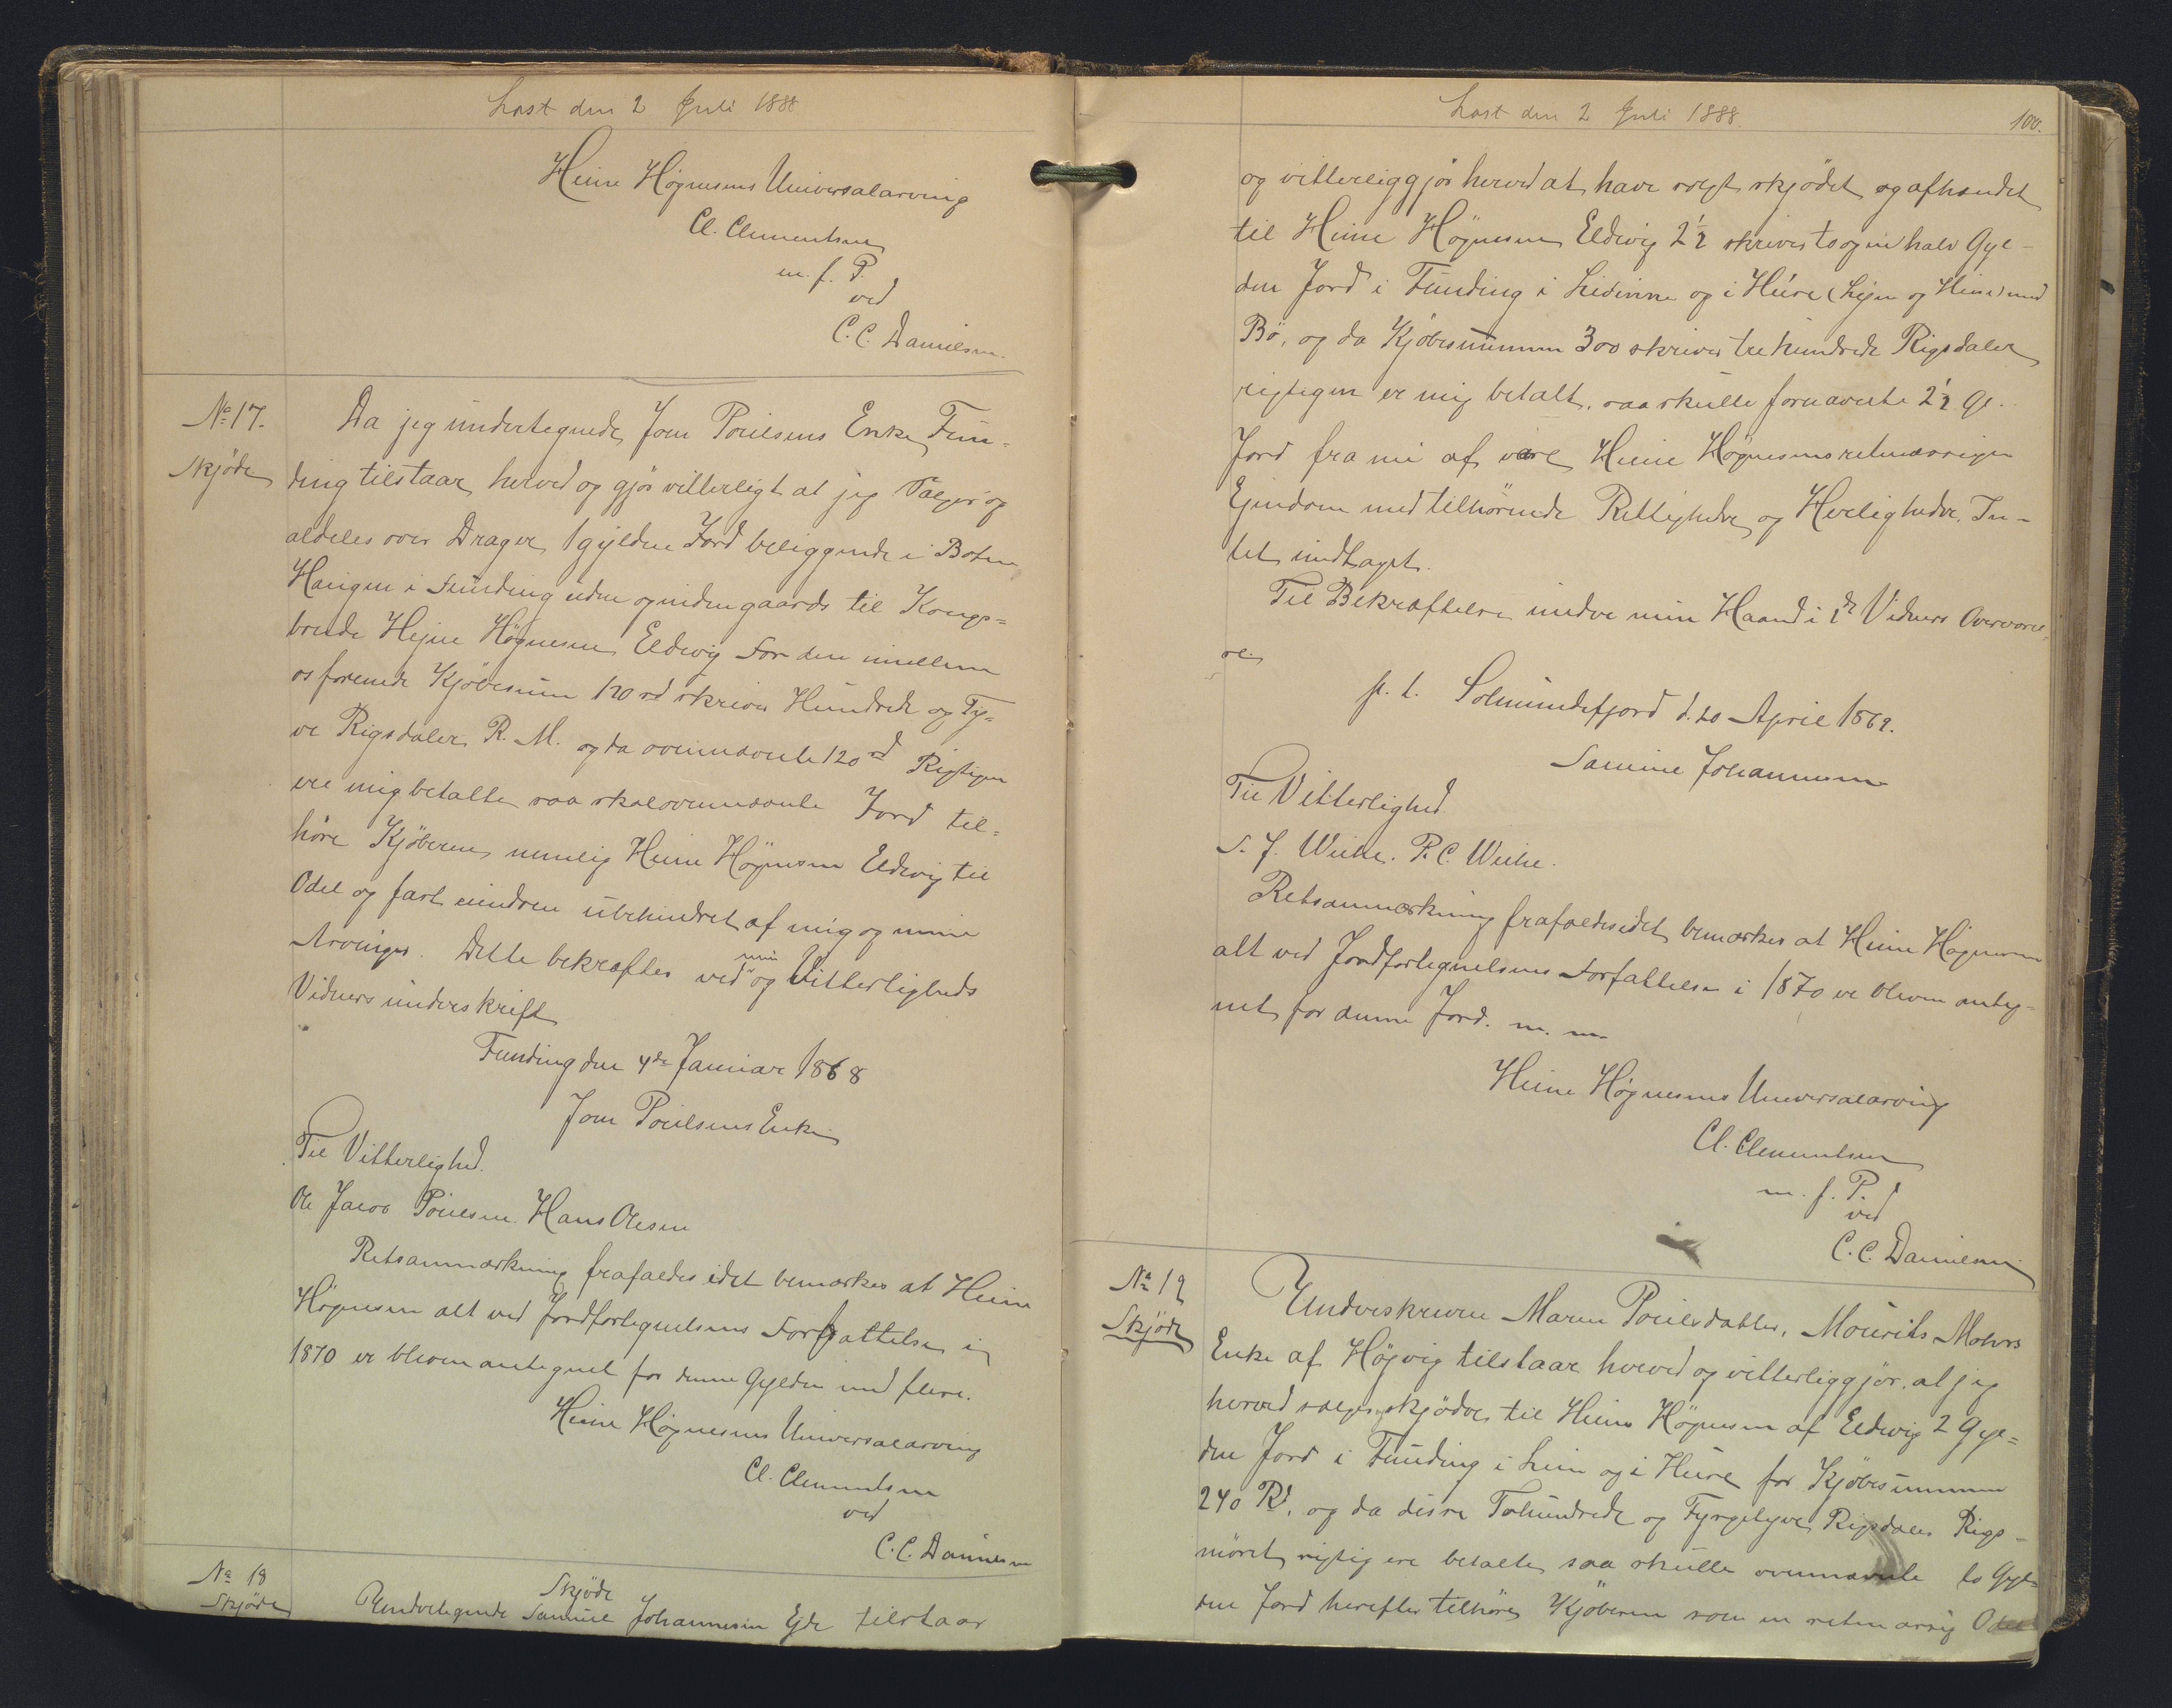 Læst den 2 Juli 1888
Heine Høgnesens Universalarving
Cl. Clementsen
m. f. P.
ved
C. C. Danielsen.
No 17.
Skjøde
Da jeg undertegnede Joen Poulsens Enke, Fun=
ding tilstaar herved og gjør vitterligt at jeg Sælger og
aldeles over Drager 1 gylden Jord beliggende i Boten
Haugen i Funding uden og inden gaards til Kongs=
bonde Hejne Høgnesen Eldevig For den imellem
os forenede Kjøbesum 120 rd skriver Hundrede og Ty=
ve Rigsdaler R. M. og da ovennævnte 120 rd Rigtigen
ere mig betalte saa skal ovennævnte Jord til=
høre Kjøberen nemlig Heine Høgnesen Eldevig til
Odel og fast eiendom ubehindret af mig og mine
Arvinger. Dette bekræftes ved min og Vitterligheds
Vidners underskrift
Funding den 4de Januar 1868
Joen Poulsens Enke
Til Vitterlighed.
Ole Jacob Poulsen. Hans Olesen
Retsanmærkning frafaldes idet bemærkes at Heine
Høgnesen alt ved Jordfortegnelsens Forfattelse i
1870 er bleven antegnet for denne Gylden med flere.
Heine Høgnesens Universalarving
Cl. Clementsen
ved
C. C. Danielsen
No 18
Skjøde
Skjøde
Undertegnede Samuel Johannesen Ejde tilstaar
Læst den 2 Juli 1888.
100.
og vitterliggjør herved at have solgt skjødet og afhændet
til Heine Høgnesen Eldevig 2 1/2 skriver to og en halv Gyl-
den Jord i Funding i Lidinne og i Húse (Lejen og Huse) med
Bø, og da Kjøbesummen 300 skriver tre hundrede Rigsdaler
rigtigen er mig betalt, saa skulle fornævnte 2 1/2 Gl.
Jord fra nu af være Heine Høgnesens retmæssigen
Ejendom med tilhørende Rettigheder og Herligheder, In-
tet undtaget.
Til Bekræftelse under min Haand i 2de Vidners Overværel-
se.
p. t. Solmundefjord d. 20 April 1869.
Samuel Johannesen
Til Vitterlighed
S. J. Weihe. P. C. Weihe.
Retsanmærkning frafaldes idet bemærkes at Heine Høgnesen
alt ved Jordfortegnelsens Forfattelse i 1870 er bleven anteg-
net for denne Jord. m. m.
Heine Høgnesens Universalarving
Cl. Clementsen
m. f. P.
ved
C. C. Danielsen
No 19
Skjøde
Underskreven Maren Poulsdatter, Mourits Mohrs
Enke af Højvig tilstaar herved og vitterliggjør, at jeg
herved sælger, skjøder til Heine Høgnesen af Eldevig 2 Gyl=
den Jord i Funding i Leim og i Húse for Kjøbesummen
240 Rd. og da disse Tohundrede og Fyrgetyve Rigsdaler Rigs-
mønt rigtig ere betalte saa skulle ovennævnte to Gyl=
den Jord herefter tilhøre Kjøberen som en retmæssig Odel